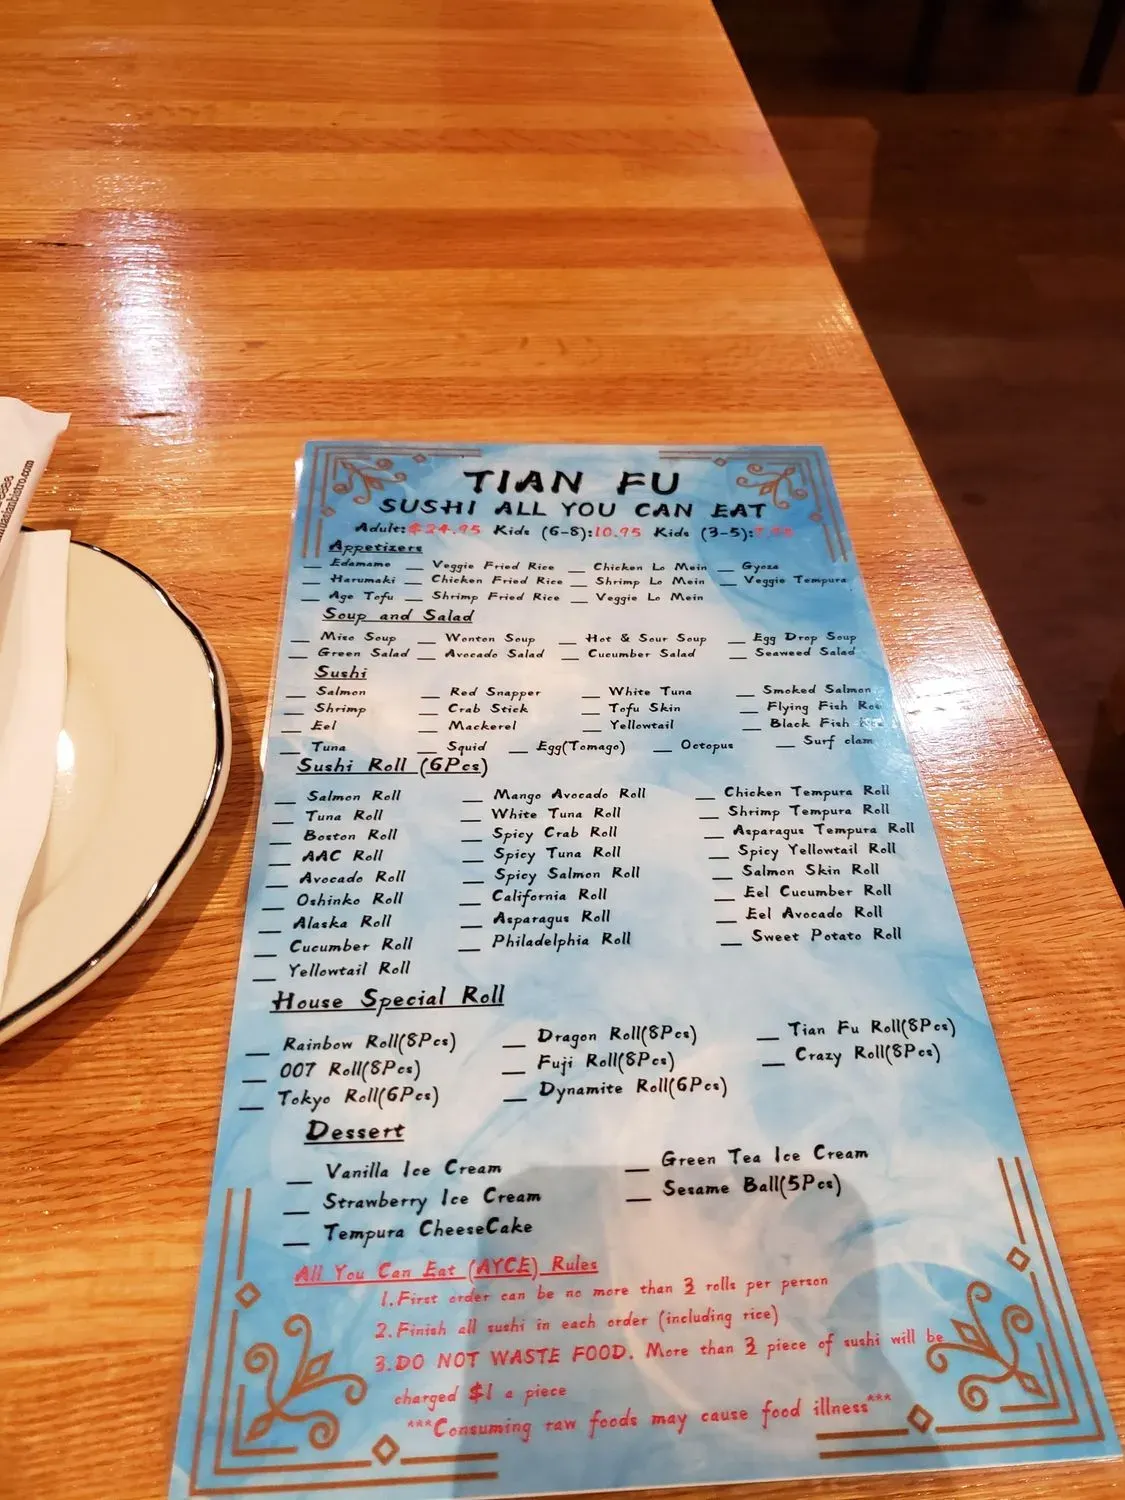 TIAN FU
SUSHI ALL YOU CAN EAT
Adult: $24.95 Kids (6-8): 10.95 Kids (3-5):
Appetizers
__ Edamame __ Veggie Fried Rice __ Chicken Lo Mein __ Gyoza
__ Harumaki __ Chicken Fried Rice __ Shrimp Lo Mein __ Veggie Tempura
__ Age Tofu __ Shrimp Fried Rice __ Veggie Lo Mein
Soup and Salad
__ Miso Soup __ Wonton Soup __ Hot & Sour Soup __ Egg Drop Soup
__ Green Salad __ Avocado Salad __ Cucumber Salad __ Seaweed Salad
Sushi
__ Salmon __ Red Snapper __ White Tuna __ Smoked Salmon
__ Shrimp __ Crab Stick __ Tofu Skin __ Flying Fish Roe
__ Eel __ Mackerel __ Yellowtail __ Black Fish
__ Tuna __ Squid __ Egg(Tomago) __ Octopus __ Surf clam
Sushi Roll (6Pcs)
__ Salmon Roll __ Mango Avocado Roll __ Chicken Tempura Roll
__ Tuna Roll __ White Tuna Roll __ Shrimp Tempura Roll
__ Boston Roll __ Spicy Crab Roll __ Asparagus Tempura Roll
__ AAC Roll __ Spicy Tuna Roll __ Spicy Yellowtail Roll
__ Avocado Roll __ Spicy Salmon Roll __ Salmon Skin Roll
__ Oshinko Roll __ California Roll __ Eel Cucumber Roll
__ Alaska Roll __ Asparagus Roll __ Eel Avocado Roll
__ Cucumber Roll __ Philadelphia Roll __ Sweet Potato Roll
__ Yellowtail Roll
House Special Roll
__ Rainbow Roll(8Pcs) __ Dragon Roll(8Pcs) __ Tian Fu Roll(8Pcs)
__ 007 Roll(8Pcs) __ Fuji Roll(8Pcs) __ Crazy Roll(8Pcs)
__ Tokyo Roll(6Pcs) __ Dynamite Roll(6Pcs)
Dessert
__ Vanilla Ice Cream __ Green Tea Ice Cream
__ Strawberry Ice Cream __ Sesame Ball(5Pcs)
__ Tempura CheeseCake
All You Can Eat (AYCE) Rules
1.First order can be no more than 3 rolls per person
2.Finish all sushi in each order (including rice)
3.DO NOT WASTE FOOD. More than 3 piece of sushi will be
charged $1 a piece
***Consuming raw foods may cause food illness***